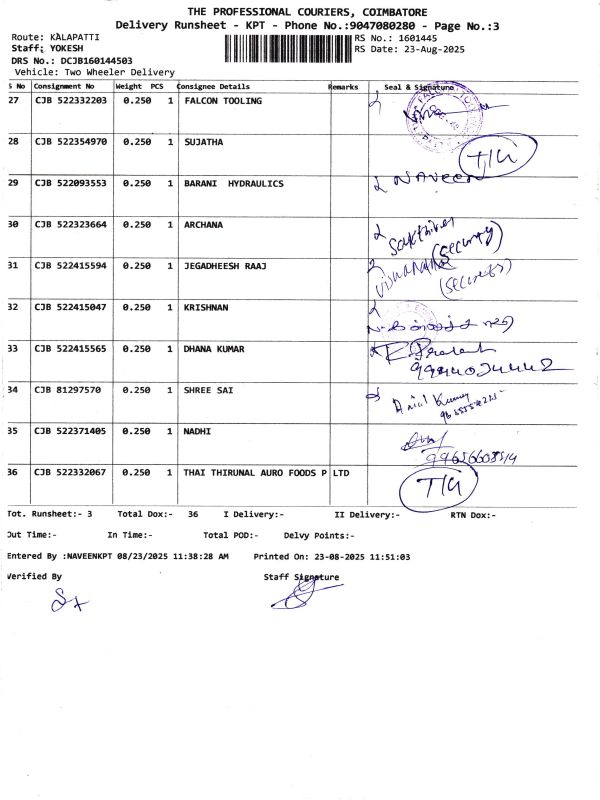 THE PROFESSIONAL COURIERS, COIMBATORE
Delivery Runsheet - KPT - Phone No.:9047080280 - Page No.:3
Route: KALAPATTI
RS No.: 1601445
Staff: YOKESH
RS Date: 23-Aug-2025
DRS No.: DCJB160144503
Vehicle: Two Wheeler Delivery
S No Consignment No Weight PCS Consignee Details Remarks Seal & Signature
27 CJB 522332203 0.250 1 FALCON TOOLING
28 CJB 522354970 0.250 1 SUJATHA
29 CJB 522093553 0.250 1 BARANI HYDRAULICS Naveen
30 CJB 522323664 0.250 1 ARCHANA Sakthivel (Security)
31 CJB 522415594 0.250 1 JEGADHEESH RAAJ (Security)
32 CJB 522415047 0.250 1 KRISHNAN
33 CJB 522415565 0.250 1 DHANA KUMAR
34 CJB 81297570 0.250 1 SHREE SAI
35 CJB 522371405 0.250 1 NADHI
36 CJB 522332067 0.250 1 THAI THIRUNAL AURO FOODS P LTD
Tot. Runsheet:- 3 Total Dox:- 36 I Delivery:- II Delivery:- RTN Dox:-
Out Time:- In Time:- Total POD:- Delvy Points:-
Entered By :NAVEENKPT 08/23/2025 11:38:28 AM Printed On: 23-08-2025 11:51:03
Verified By Staff Signature